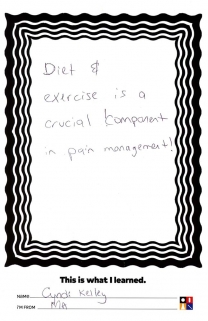 Diet &
exercise is a
crucial component
in pain management!
This is what I learned.
NAME Cyndi Kelley
I'M FROM MA